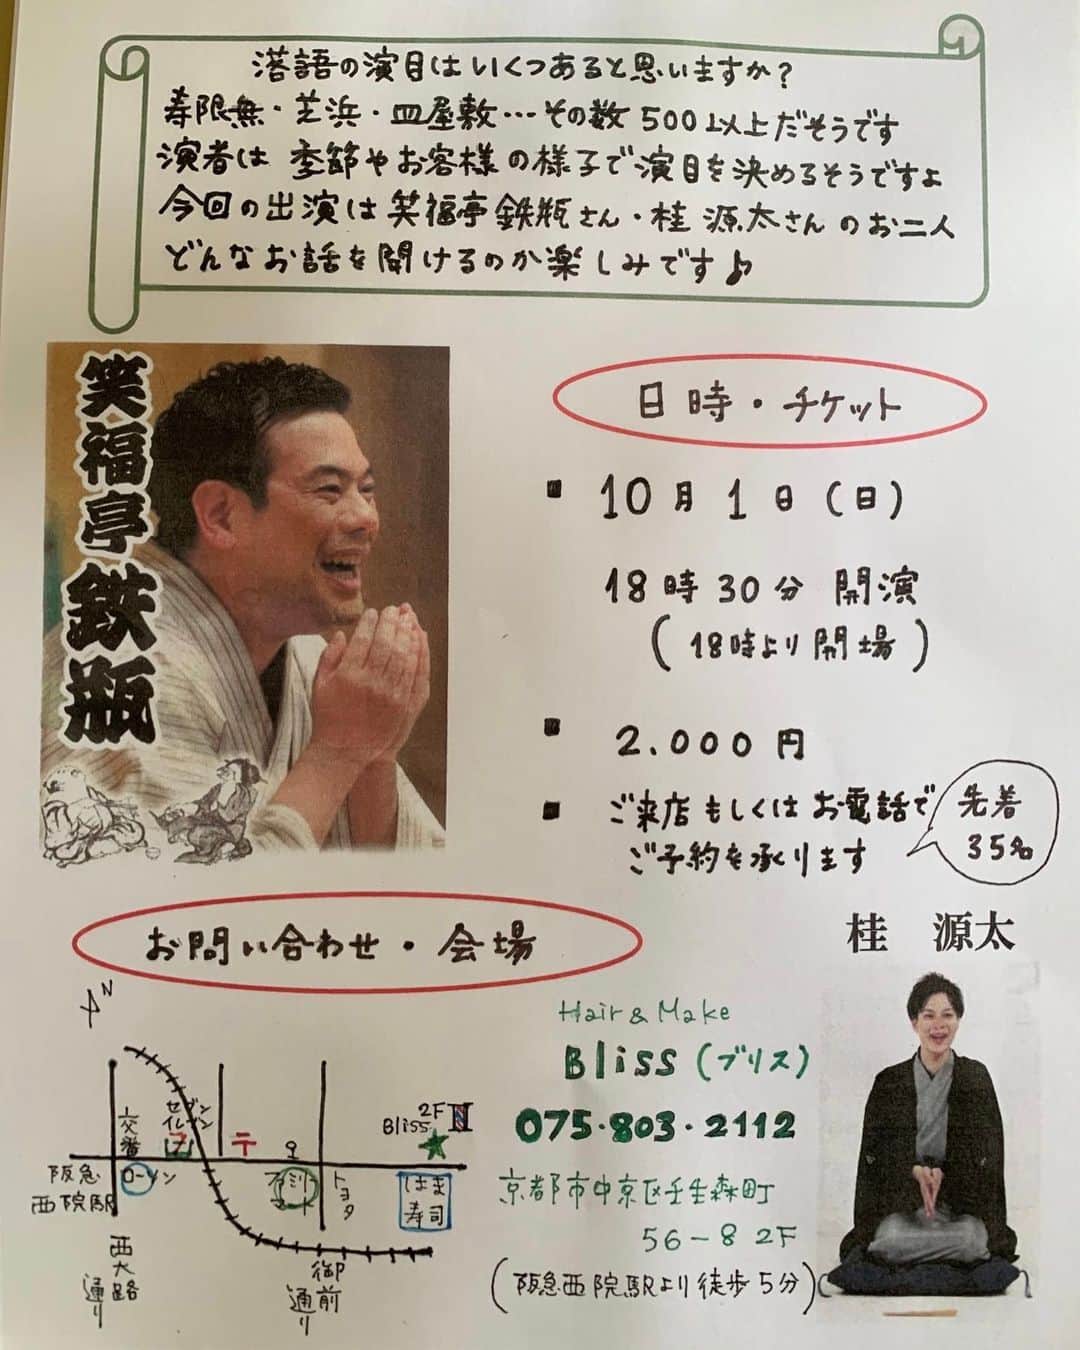 落語の演目はいくつあると思いますか?
寿限無・芝浜・皿屋敷…その数500以上だそうです
演者は季節やお客様の様子で演目を決めるそうですよ
今回の出演は笑福亭鉄瓶さん・桂源太さんのお二人
どんなお話を聞けるのか楽しみです♪
笑福亭鉄瓶
日時・チケット
■ 10月1日(日)
18時30分 開演
(18時より開場)
■ 2.000円
■ ご来店もしくはお電話で
ご予約を承ります
先着
35名
お問い合わせ・会場
桂 源太
Hair & Make
Bliss (ブリス)
075・803・2112
京都市中京区壬生森町
56-8 2F
(阪急西院駅より徒歩5分)
N
交番
セブン
イレブン
7
〒
2F
Bliss
阪急
西院駅
ローソン
ファミリー
マート
トヨタ
はま
寿司
西大路
通り
御前
通り